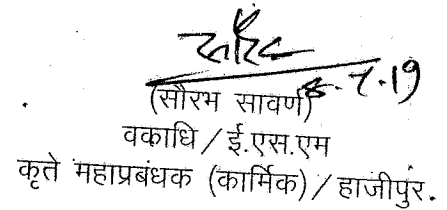 सौरभ
8.7.19
(सौरभ सावर्ण)
वकाधि / ई.एस.एम
कृते महाप्रबंधक (कार्मिक) / हाजीपुर.